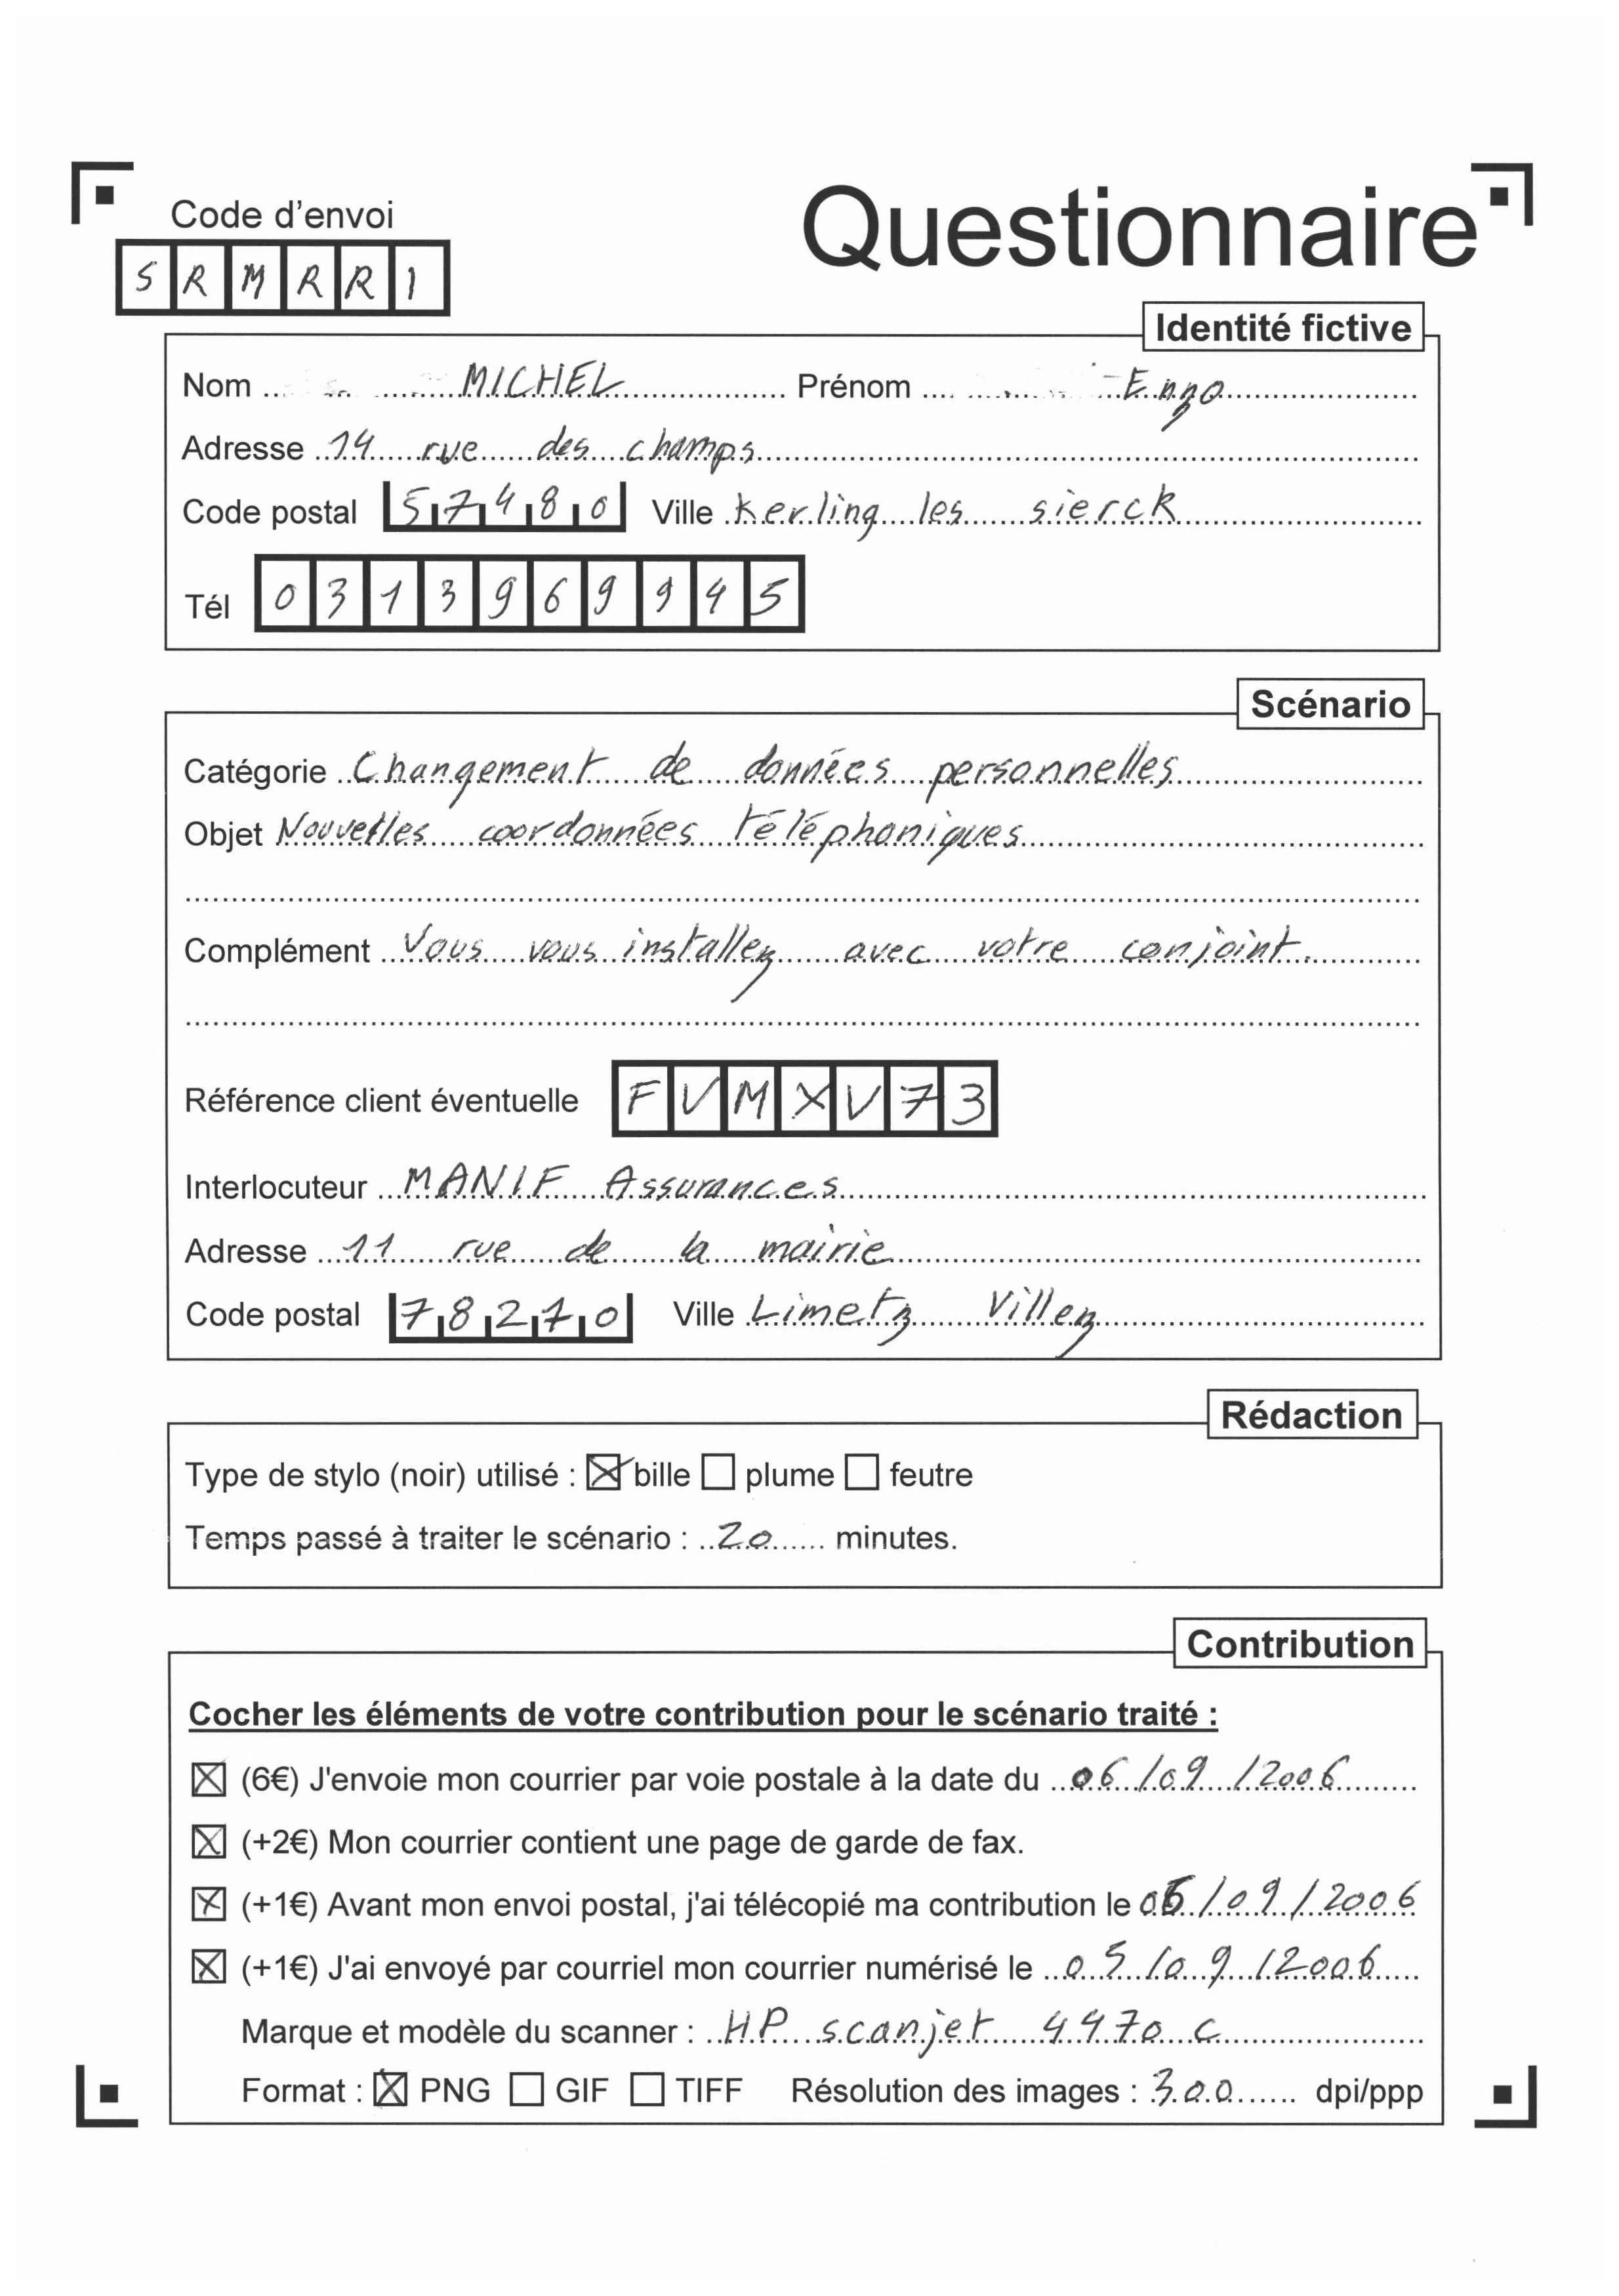 Code d'envoi
Questionnaire
SRMRRI
Identité fictive
Nom MICHEL Prénom -Enzo
Adresse 14 rue des champs
Code postal 57480 Ville Kerling les sierck
Tél 0313969945
Scénario
Catégorie Changement de données personnelles
Objet Nouvelles coordonnées téléphoniques
Complément Vous vous installez avec votre conjoint.
Référence client éventuelle FVMXV73
Interlocuteur MANIF Assurances
Adresse 11 rue de la mairie
Code postal 78270 Ville Limetz Villez
Rédaction
Type de stylo (noir) utilisé : bille plume feutre
Temps passé à traiter le scénario : 20 minutes.
Contribution
Cocher les éléments de votre contribution pour le scénario traité :
(6€) J'envoie mon courrier par voie postale à la date du 06/09/2006
(+2€) Mon courrier contient une page de garde de fax.
(+1€) Avant mon envoi postal, j'ai télécopié ma contribution le /09/2006
(+1€) J'ai envoyé par courriel mon courrier numérisé le 05/09/2006
Marque et modèle du scanner : HP scanjet 4470 c
Format : PNG GIF TIFF Résolution des images : 300 dpi/ppp